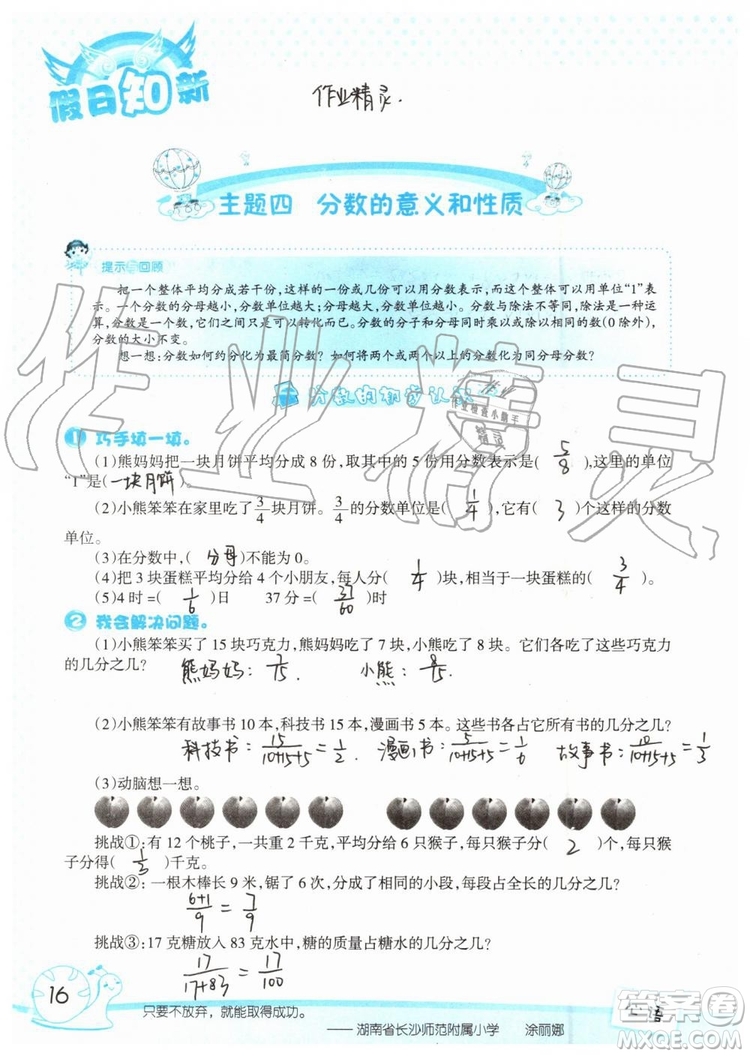 假日知新
作业精灵.
主题四 分数的意义和性质
提示与回顾
把一个整体平均分成若干份，这样的一份或几份可以用分数表示，这样的一个整体可以用单位“1”表
示。一个分数的分母越小，分数单位越大；分母越大，分数单位越小。分数与除法不等同，除法是一种运
算，分数是一个数，它们之间只是可以转化而已。分数的分子和分母同时乘以或除以相同的数(0 除外)，
分数的大小不变。
想一想：分数如何约分化为最简分数？如何将两个或两个以上的分数化成同分母分数？
一 分数的初步认识
1 巧手填一填。
(1)熊妈妈把一块月饼平均分成 8 份，取其中的 5 份用分数表示是( 5/8 )，这里的单位
“1”是(一块月饼)。
(2)小熊笨笨在家里吃了3/4块月饼。3/4的分数单位是( 1/4 )，它有( 3 )个这样的分数
单位。
(3)在分数中，( 分母 )不能为 0。
(4)把 3 块蛋糕平均分给 4 个小朋友，每人分( 1/4 )块，相当于一块蛋糕的( 3/4 )。
(5)4 时 =( 1/6 )日 37 分=( 37/60 )时
2 我会解决问题。
(1)小熊笨笨买了 15 块巧克力，熊妈妈吃了 7 块，小熊吃了 8 块。它们各吃了这些巧克力
的几分之几？ 熊妈妈 7/15 小熊: 8/15
(2)小熊笨笨有故事书 10 本，科技书 15 本，漫画书 5 本。这些书各占它所有书的几分之几？
科技书: 15/10+15+5=1/2 漫画书: 5/10+15+5=1/6 故事书: 10/10+15+5=1/3
(3)动脑想一想。
挑战①：有 12 个桃子，一共重 2 千克，平均分给 6 只猴子，每只猴子分( 2 )个，每只猴
子分得( 1/3 )千克。
挑战②：一根木棒长 9 米，锯了 6 次，分成了相同的小段，每段占全长的几分之几？
6+1/9 = 7/9
挑战③：17 克糖放入 83 克水中，糖的质量占糖水的几分之几？
17/17+83 = 17/100
16
只要不放弃，就能取得成功。
—— 湖南省长沙师范附属小学 涂丽娜
作业精灵
答案圈